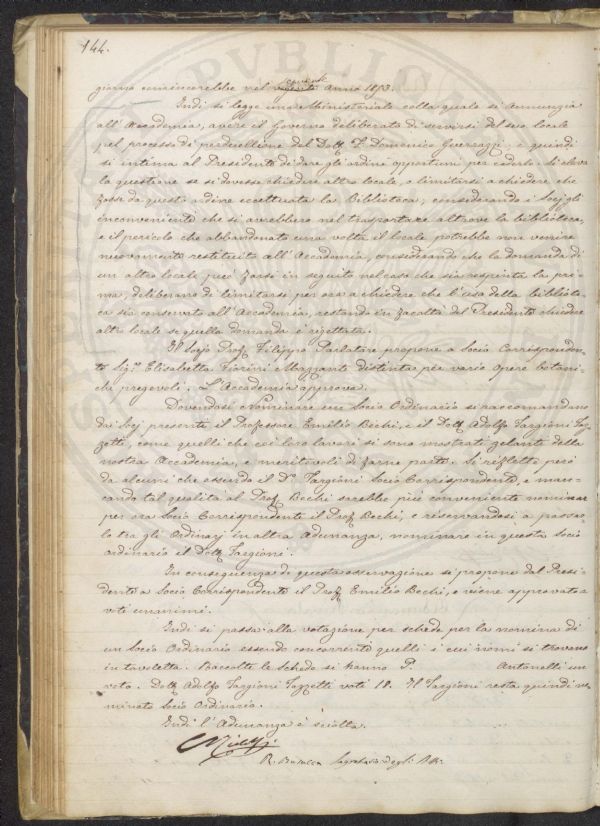 144.
giorno comincerebbe nel venente corrente Anno 1853.
Indi si legge una Ministeriale colla quale si annunzia
all'Accademia, avere il Governo deliberato di servirsi del suo locale
pel processo di perduellione del Dott. F. Domenico Guerrazzi; e quindi
si intima al Presidente di dare gli ordini opportuni per cederlo. Si eleva
la questione se si dovesse chiedere altro locale, o limitarsi a chiedere che
fosse da quest'ordine eccettuata la Biblioteca; considerando i Socj gli
inconvenienti che si avrebbero nel trasportare altrove la biblioteca,
e il pericolo che abbandonato una volta il locale potrebbe non venire
nuovamente restituito all'Accademia, considerando che la domanda di
un altro locale può farsi in seguito nel caso che sia respinta la pri-
ma, deliberano di limitarsi per ora a chiedere che l'uso della bibliote-
ca sia conservato all'Accademia, restando in facoltà del Presidente chiedere
altro locale se quella domanda è rigettata.
Il Socio Prof. Filippo Parlatore propone a Socio Corrisponden-
te Sig.ra Elisabetta Fiorini Mazzanti distinta per varie opere botani-
che pregevoli. L'Accademia approva.
Dovendosi Nominare un Socio Ordinario si raccomandano
dai Socj presenti il Professore Emilio Bechi, e il Dott. Adolfo Targioni Toz-
zetti, come quelli che coi loro lavori si sono mostrati zelanti della
nostra Accademia, e meritevoli di farne parte. Si riflette però
da alcuni che essendo il Dr. Targioni Socio Corrispondente, e man-
cando tal qualità al Prof. Bechi sarebbe più conveniente nominare
per ora Socio Corrispondente il Prof. Bechi, e riservandosi a passar-
lo tra gli Ordinarj in altra Adunanza, nominare in questa Socio
ordinario il Dott. Targioni.
In conseguenza di questa osservazione si propone dal Presi-
dente a Socio Corrispondente il Prof. Emilio Bechi, e viene approvato a
voti unanimi.
Indi si passa alla votazione per schede per la nomina di
un Socio Ordinario essendo concorrenti quelli i cui nomi si trovano
in tavoletta. Raccolte le Schede si hanno P. Antonelli un
voto. Dott. Adolfo Targioni Tozzetti voti 18. Il Targioni resta quindi no-
minato Socio Ordinario.
Indi l'Adunanza è sciolta.
R. Busacca Segretario degli Atti.